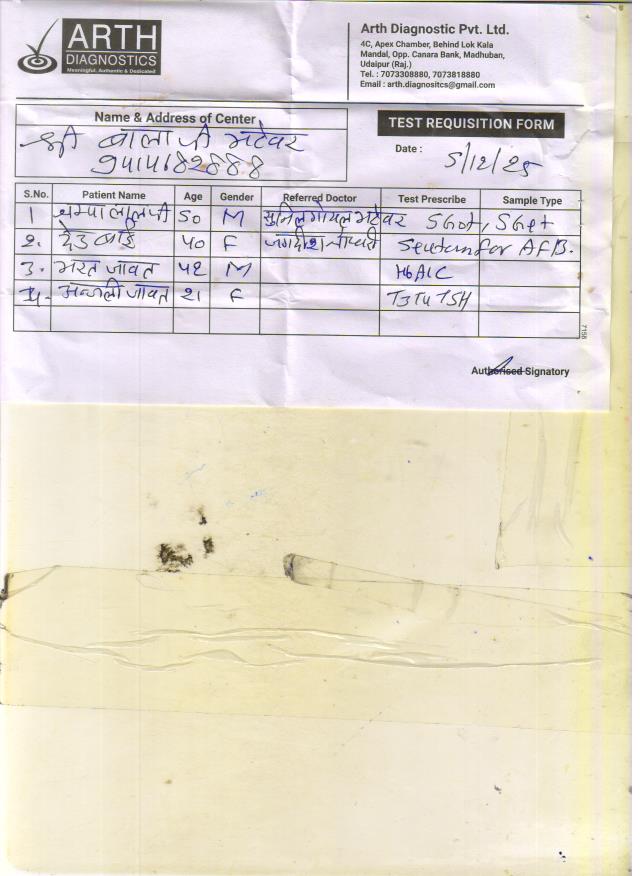 ARTH
DIAGNOSTICS
Meaningful, Authentic & Dedicated
Arth Diagnostic Pvt. Ltd.
4C, Apex Chamber, Behind Lok Kala
Mandal, Opp. Canara Bank, Madhuban,
Udaipur (Raj.)
Tel. : 7073308880, 7073818880
Email : arth.diagnositcs@gmail.com
Name & Address of Center
श्री बालाजी भटेवर
9414682888
TEST REQUISITION FORM
Date : 5/12/25
S.No. Patient Name Age Gender Referred Doctor Test Prescribe Sample Type
1 चम्पालालजी 50 M सुनिल गोयल भटेवर SGot, SGpt
2. देउ बाई 40 F जगदीश चौधरी for AFB.
3. भरत जावत 42 M HbA1C
4. अन्जली जावत 21 F T3T4TSH
7158
Authorised Signatory